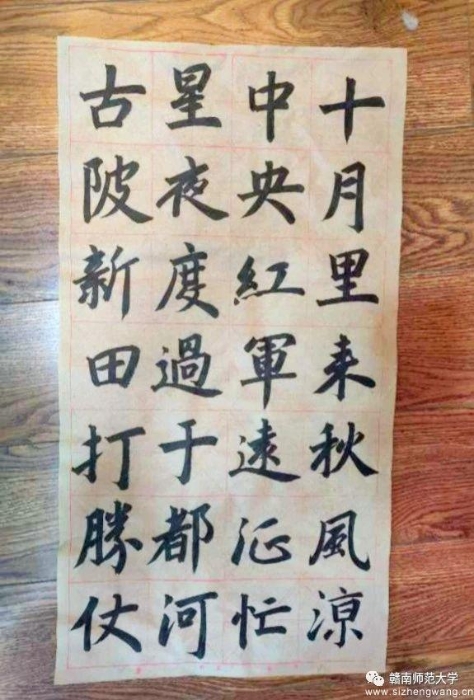 十月里来秋風涼
中央紅軍遠征忙
星夜度過于都河
古陂新田打勝仗
赣南师范大学
www.sizhengwang.cn